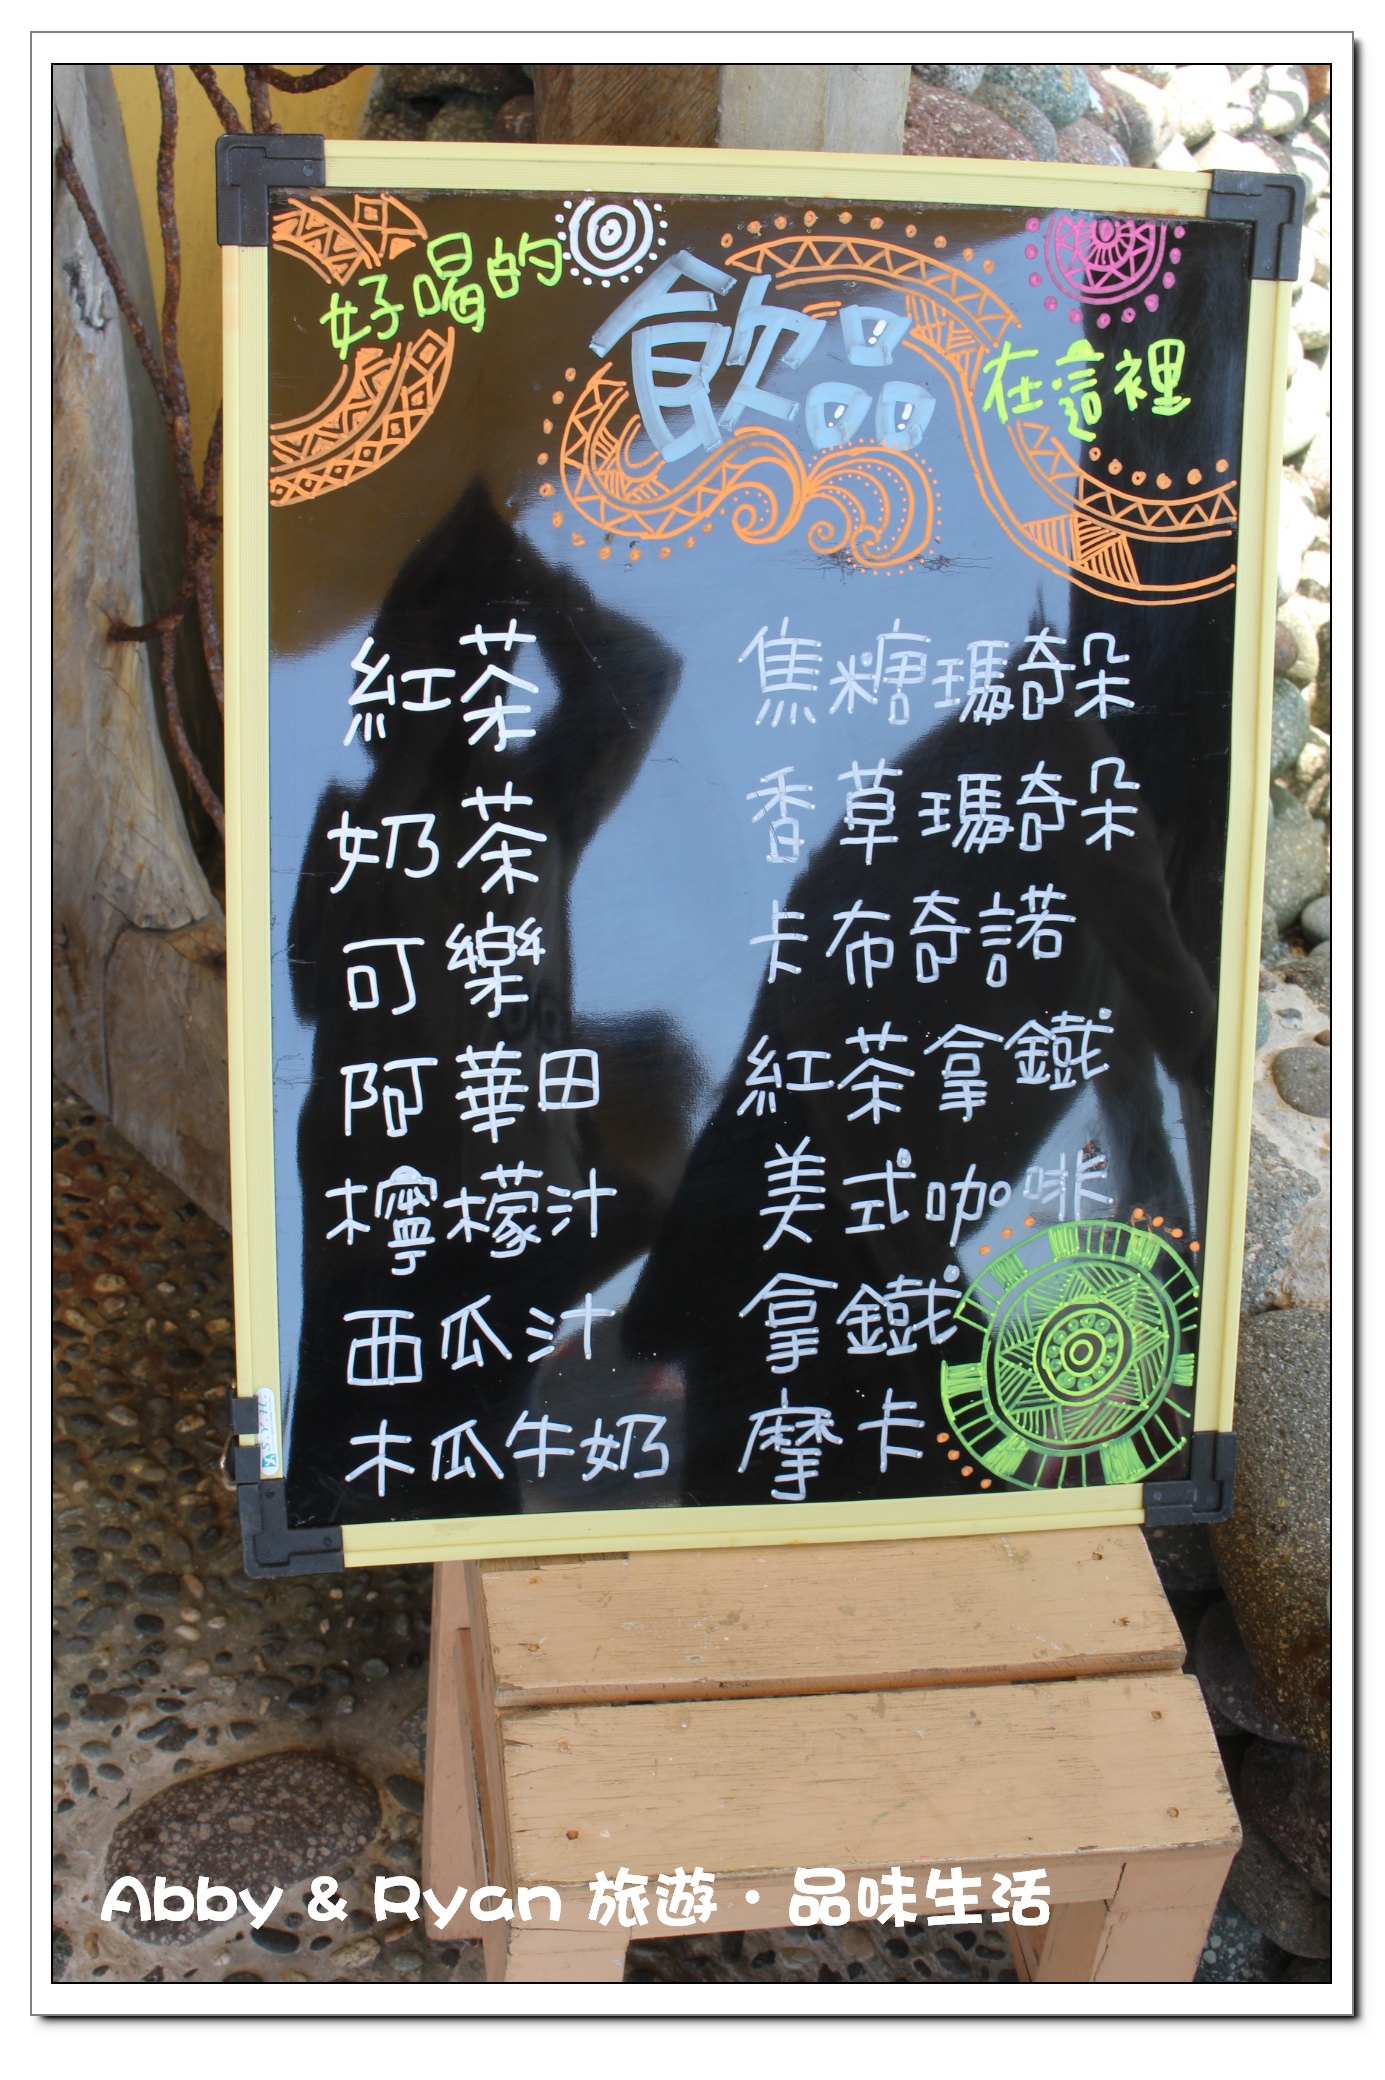 好喝的
飲品
在這裡
紅茶
奶茶
可樂
阿華田
檸檬汁
西瓜汁
木瓜牛奶
焦糖瑪奇朵
香草瑪奇朵
卡布奇諾
紅茶拿鐵
美式咖啡
拿鐵
摩卡
Abby & Ryan 旅遊·品味生活